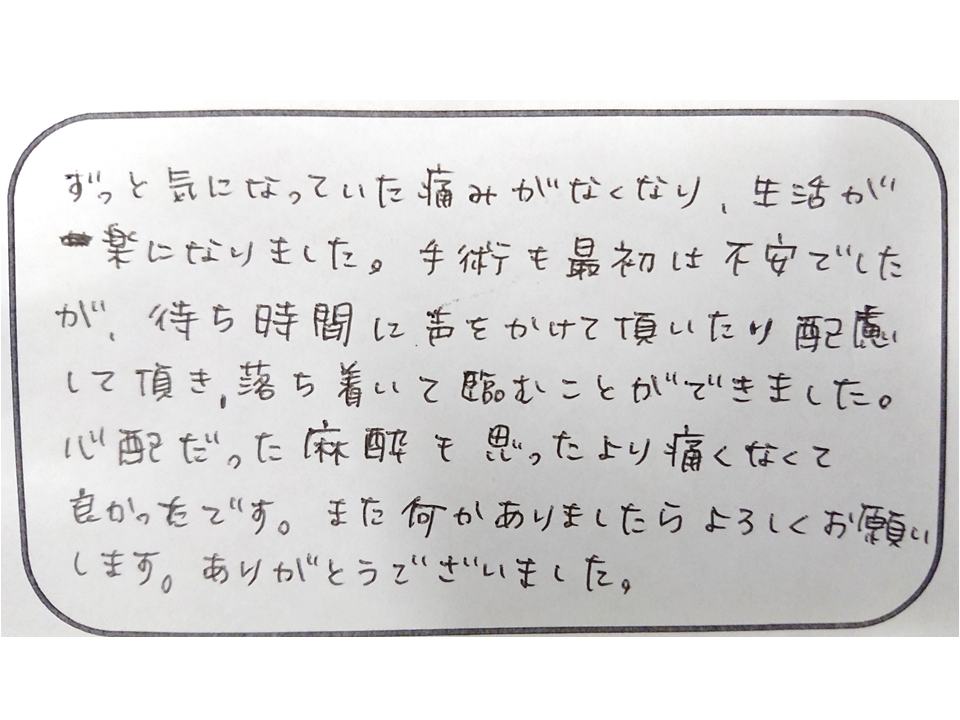 ずっと気になっていた痛みがなくなり、生活が
楽になりました。手術も最初は不安でした
が、待ち時間に声をかけて頂いたり配慮
して頂き、落ち着いて臨むことができました。
心配だった麻酔も思ったより痛くなくて
良かったです。また何かありましたらよろしくお願い
します。ありがとうございました。